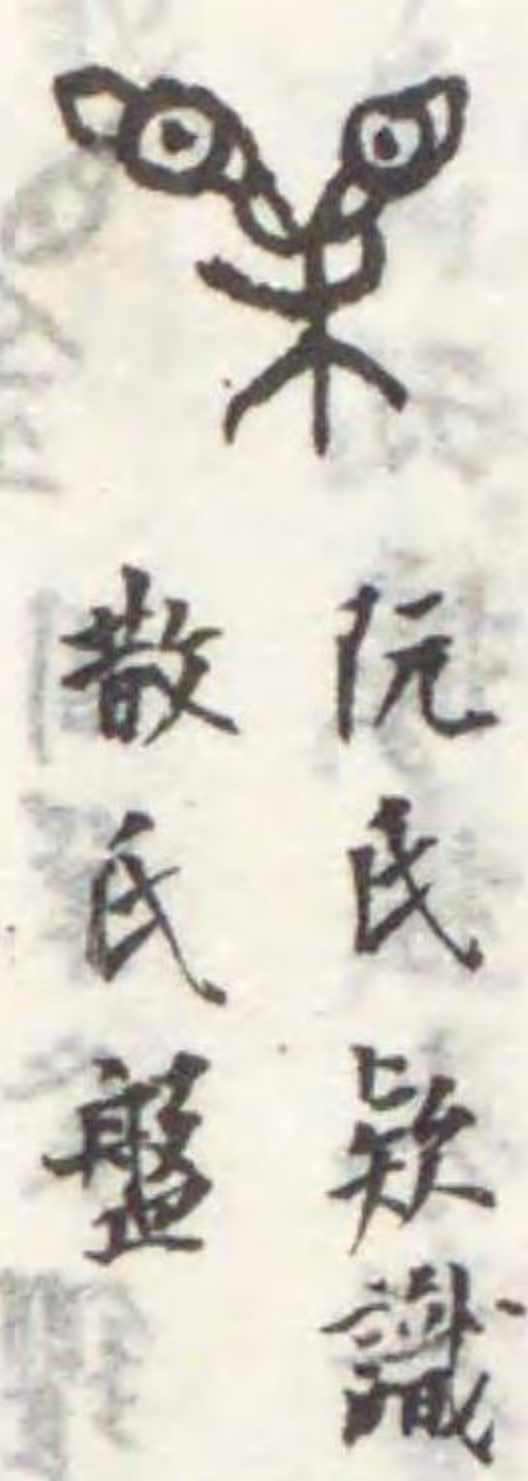 阮氏欵識
散氏盤